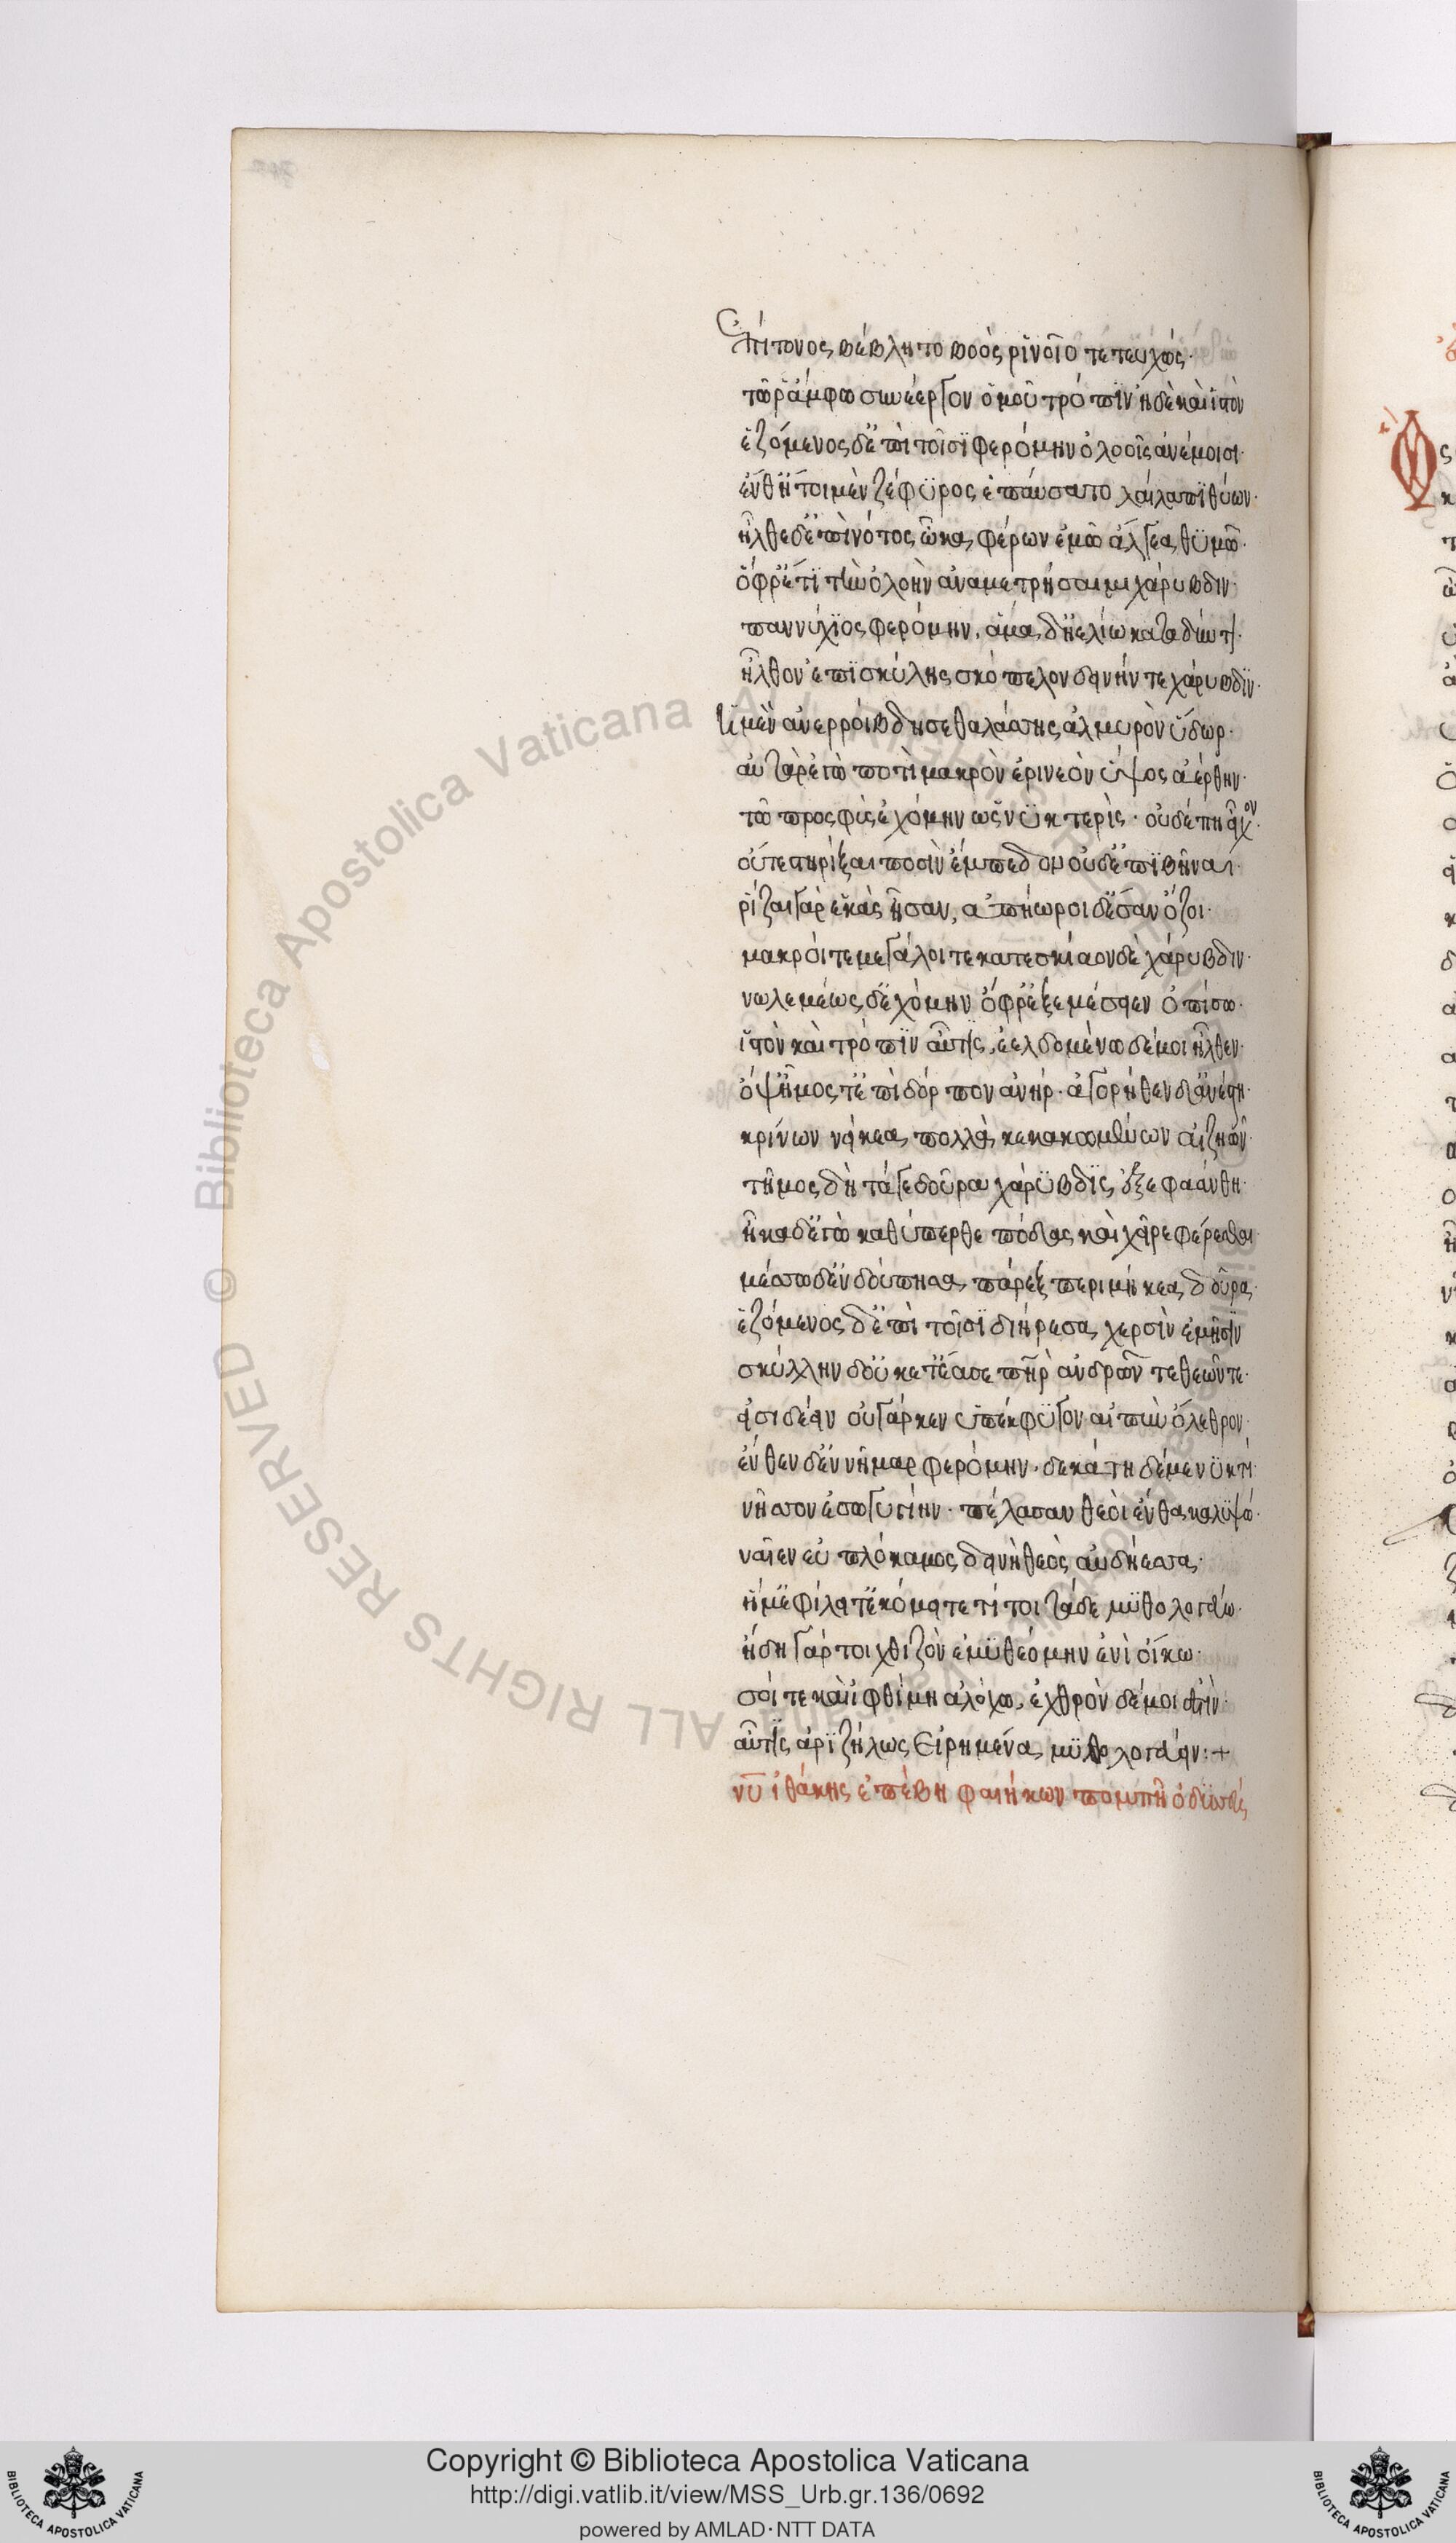 Ἐπίτονος βέβλητο βοὸς ῥινοῖο τετευχώς·
τῶ ῥ' ἄμφω συνέεργον ὁμοῦ τρόπιν ἠδὲ καὶ ἱστὸν
ἑζόμενος δ' ἐπὶ τοῖσι φερόμην ὀλοοῖς ἀνέμοισι·
ἔνθ' ἤτοι μὲν ζέφυρος ἐπαύσατο λαίλαπι θύων·
ἦλθε δ' ἐπὶ νότος ὦκα φέρων ἐμῶ ἄλγεα θυμῶ·
ὄφρ' ἔτι τὴν ὀλοὴν ἀναμετρήσαιμι χάρυβδιν·
παννύχιος φερόμην, ἅμα δ' ἠελίω καταδύντι·
ἦλθον ἐπὶ σκύλης σκόπελον δεινήν τε χάρυβδιν·
Ἡ μὲν ἀνερροίβδησε θαλάσσης ἁλμυρὸν ὕδωρ·
αὐτὰρ ἐγὼ ποτὶ μακρὸν ἐρινεὸν ὑψος ἀέρθην·
τῶ προσφὺς ἐχόμην ὡς νυκτερίς· οὐδέ πη εἶχον·
οὔτε στηρίξαι ποσὶν ἔμπεδον οὐδ' ἐπιβῆναι·
ῥίζαι γὰρ ἑκὰς ἦσαν, ἀπήωροι δ' ἔσαν ὄζοι·
μακροί τε μεγάλοι τε κατεσκίαον δὲ χάρυβδιν·
νωλεμέως δ' ἐχόμην ὄφρ' ἐξεμέσειεν ὀπίσω·
ἱστὸν καὶ τρόπιν αὖτις, ἐελδομένω δέ μοι ἦλθεν·
ὄψ' ἦμος τ' ἐπὶ δόρπον ἀνήρ· ἀγορήθεν δ' ἀνέστη·
κρίνων νείκεα πολλὰ κακοσμθύων αἰζηῶν·
τῆμος δὴ τάγε δοῦρα χάρυβδις ἐξεφαάνθη·
ἧκα δ' ἐγὼ καθύπερθε πόδας καὶ χεῖρε φέρεσθαι
μέσσω δ' ἐν δούπησα πάρεξ περιμήκεα δοῦρα·
ἑζόμενος δ' ἐπὶ τοῖσι διήρεσα χερσὶν ἐμῆσιν
σκύλλην δ' οὐκετ' ἔασε πὴρ ἀνδρῶν τε θεῶν τε·
εἰσιδέειν οὐ γάρ κεν ὑπέκφυγον αἰπὺν ὄλεθρον·
ἔνθεν δ' ἐννῆμαρ φερόμην· δεκάτη δέ με νυκτὶ
νῆσον ἐς ὠγυγίην· πέλασαν θεοὶ ἔνθα καλυψώ·
ναίεν εὐπλόκαμος δεινὴ θεὸς αὐδήεσσα·
ἥ μ' ἐφίλει τ' ἐκόμει τε τί τοι τάδε μυθολογεύω·
ἤδη γάρ τοι χθιζὸν ἐμυθεόμην ἐνὶ οἴκω·
σοί τε καὶ ἰφθίμη ἀλόχω, ἐχθρὸν δέ μοι ἐστὶν·
αὖτις ἀριζήλως Εἰρημένα μυθολογεύειν:+
νῦ ἰθάκης ἐπέβη φαιήκων πομπῆ ὀδυσσεύς